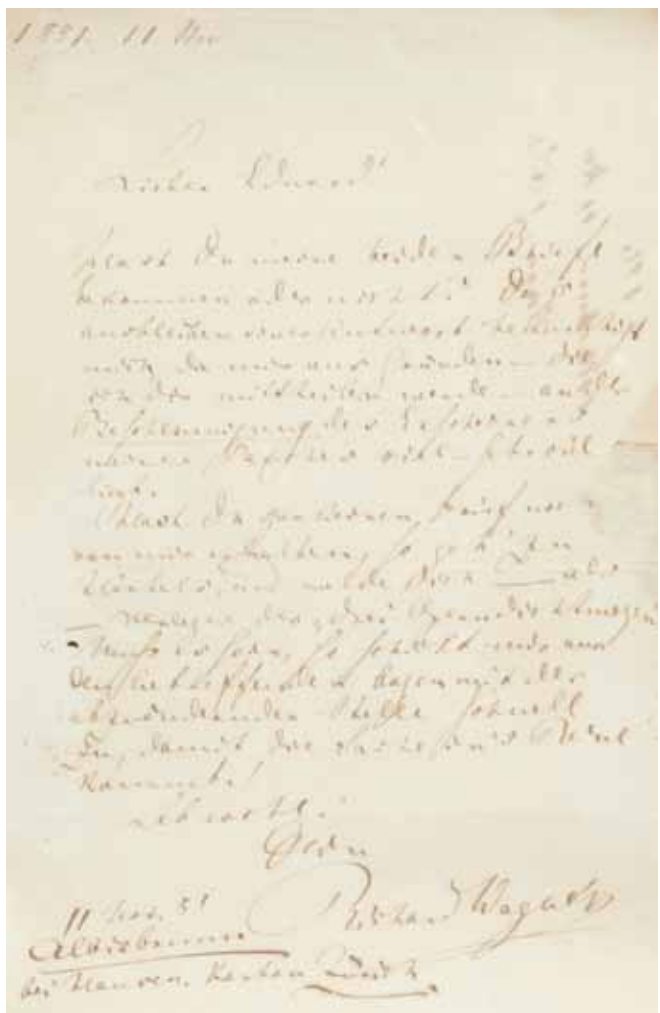 1851. 11. Nov
Lieber Eduard!
Hast Du meine beiden Briefe
bekommen oder nicht? Das
ausbleiben einer Antwort
mich, da mir aus Gründen – die
ich dir mittheilen werde – an der
Beschleunigung des Erscheinens
meiner
Hast Du
von mir erhalten, so geh' zu
Härtels, und melde Dich als
Verleger der drei Operndichtungen
Muß es sein, so schickt mir nur
den betreffenden Bogen mit der
abzuändernden Stelle schnell
zu, damit die Sache in's Reine
kommt!
Leb wohl!
Dein
Richard Wagner
11 Nov. 51
Albisbrunn
bei Hausen. Kanton Zürich